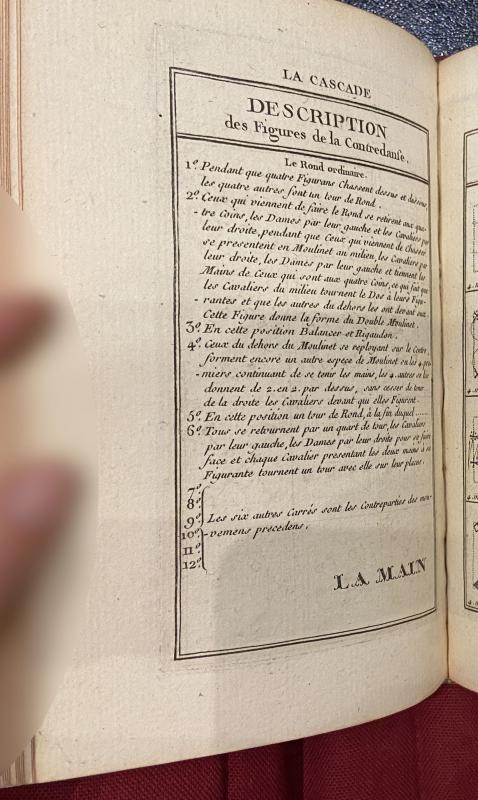 LA CASCADE
DESCRIPTION
des Figures de la Contredanse.
Le Rond ordinaire.
1º. Pendant que quatre Figurans Chassent dessus et dessous,
les quatre autres font un tour de Rond.
2º. Ceux qui viennent de faire le Rond se retirent aux qua-
-tre Coins, les Dames par leur gauche et les Cavaliers par
leur droite, pendant que Ceux qui viennent de Chasser
se presentent en Moulinet au milieu, les Cavaliers par
leur droite, les Dames par leur gauche et tiennent les
Mains de Ceux qui sont aux quatre Coins, ce qui fait que
les Cavaliers du milieu tournent le Dos à leurs Figu-
-rantes et que les autres du dehors les ont devant eux.
Cette Figure donne la forme du Double Moulinet.
3º. En cette position Balancer et Rigaudon.
4º. Ceux du dehors du Moulinet se reployant sur le Centre
forment encore un autre espece de Moulinet ou les 4. pre-
-miers continuant de se tenir les mains, les 4. autres se les
donnent de 2. en 2. par dessus, sans cesser de tenir
de la droite les Cavaliers devant qui elles Figurent.
5º. En cette position un tour de Rond, à la fin duquel ......
6º. Tous se retournent par un quart de tour, les Cavaliers
par leur gauche, les Dames par leur droite pour se faire
face et chaque Cavalier presentant les deux mains à sa
Figurante tournent un tour avec elle sur leur place.
7º.
8º.
9º. Les six autres Carrés sont les Contreparties des mou-
10º. -vemens precedens.
11º.
12º.
LA MAIN